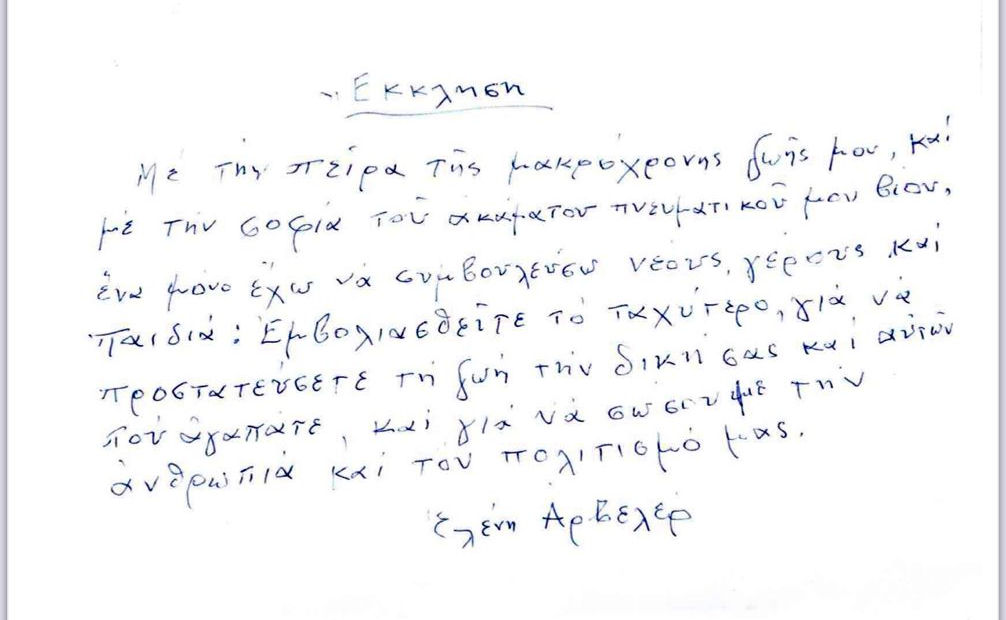 Ἔκκληση
Μέ τήν πεῖρα τῆς μακρόχρονης ζωῆς μου, καί
μέ τήν σοφία τοῦ ἀκάματου πνευματικοῦ μου βίου,
ἕνα μόνο ἔχω νά συμβουλεύσω νέους, γέρους καί
παιδιά: Ἐμβολιασθεῖτε τό ταχύτερο, γιά νά
προστατεύσετε τή ζωή τήν δική σας καί αὐτῶν
πού ἀγαπᾶτε, καί γιά νά σώσουμε τήν
ἀνθρωπιά καί τόν πολιτισμό μας.
Ἑλένη Ἀρβελέρ